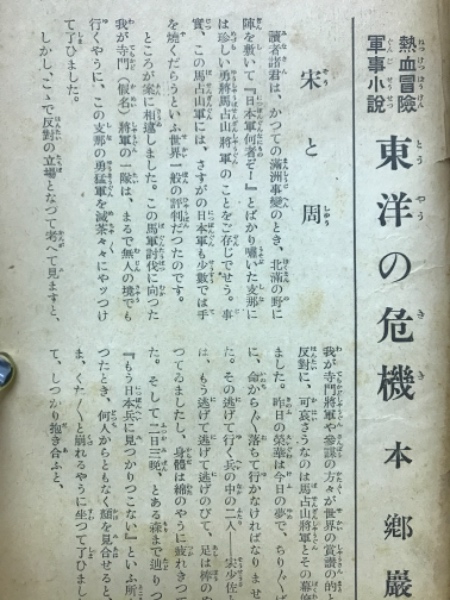 熱血冒險
軍事小說
東洋の危機
本鄉巖
宋と周
讀者諸君は、かつての滿洲事變のとき、北滿の野に
陣を敷いて『日本軍何者ぞ!』とばかり嘯いた支那に
は珍しい勇將馬占山將軍のことをご存じでせう。事
實、この馬占山軍には、さすがの日本軍も少數では手
を燒くだらうといふ世界一般の評判だつたのです。
ところが案に相違しました。この馬軍討伐に向つた
我が寺門(假名)將軍の一隊は、まるで無人の境でも
行くやうに、この支那の勇猛軍を滅茶々々にヤッつけ
て了ひました。
しかし、こゝで反對の立場となつて考へて見ますと、
我が寺門將軍や參謀の方々が世界の賞讃の的と
反對に、可哀さうなのは馬占山將軍とその幕僚
ました。昨日の榮華は今日の夢で、ちり〴〵ば
に、命から〴〵落ちて行かなければなりませ
た。その逃げて行く兵の中の二人――宋少佐と
は、もう逃げて逃げて逃げのびて、足は棒の
つてゐましたし、身體は綿のやうに疲れきつて
た。そして二日三晩、とある森まで辿りつ
『もう日本兵に見つかりつこない』といふ所
つたとき、何人からともなく顏を見合せると、
ま、くた〳〵と崩れるやうに坐つて了ひまし
て、しつかり抱き合ふと、